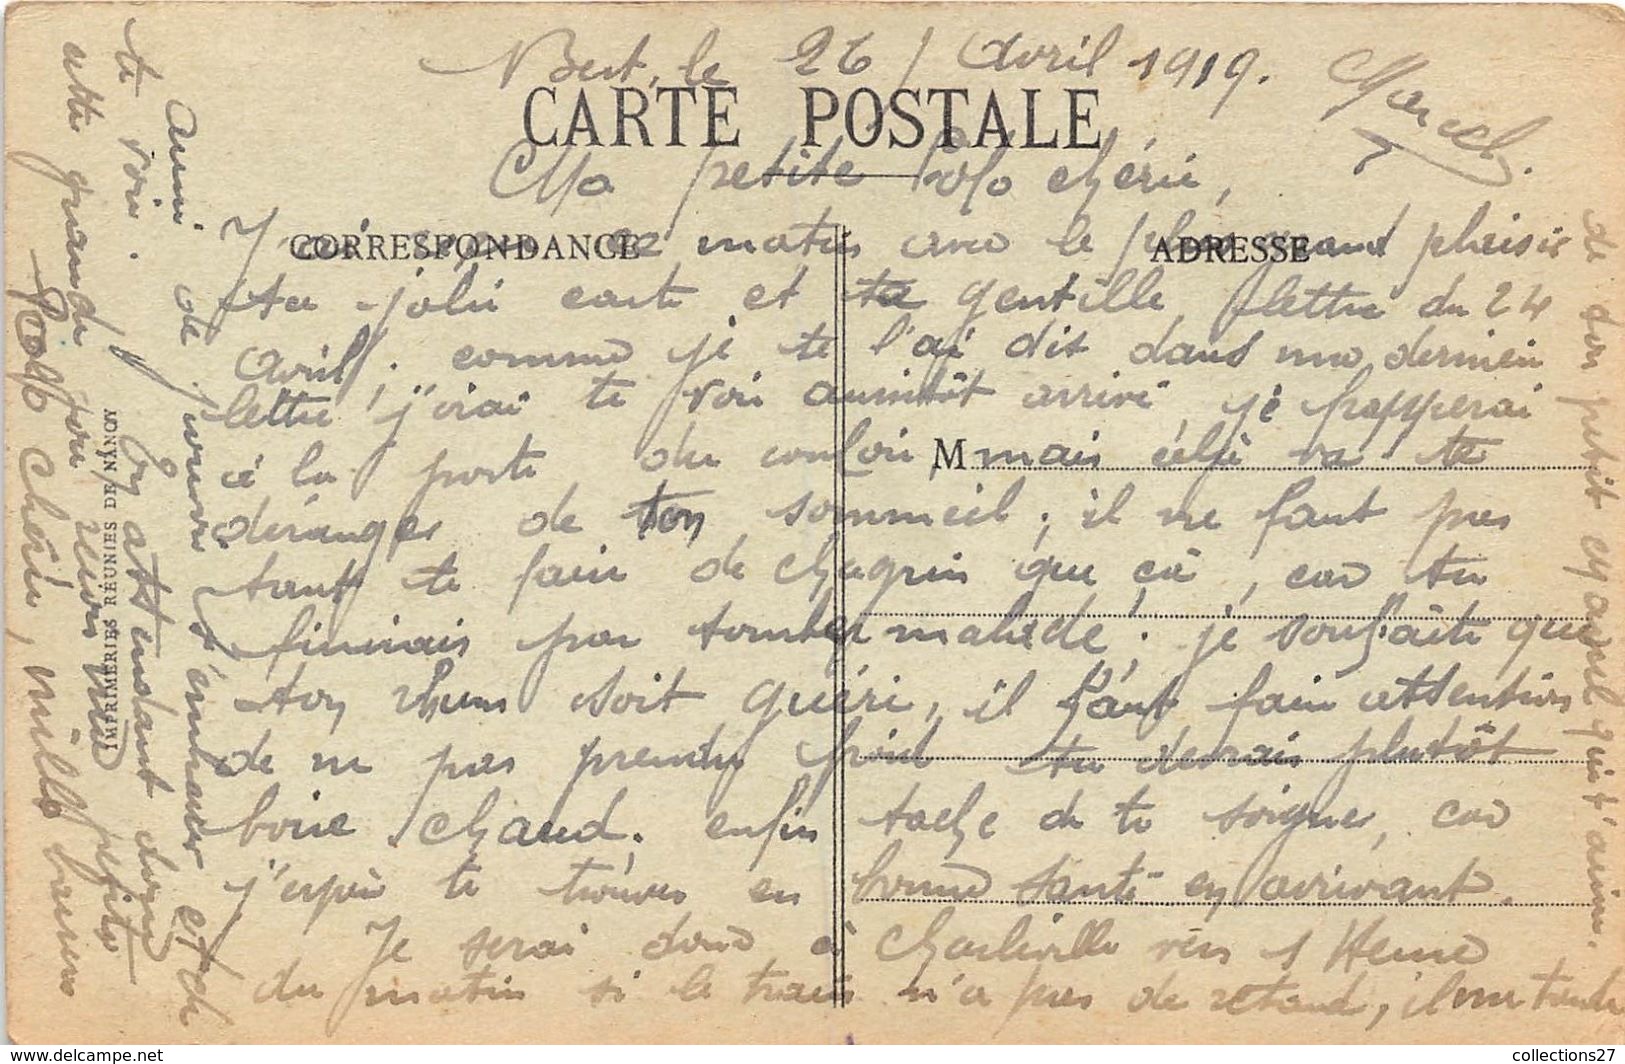 Bert, le 26 / Avril 1919.
CARTE POSTALE
Ma petite Lolo chérie,
CORRESPONDANCE
ADRESSE
J'ai reçu ce matin avec le plus grand plaisir
ta jolie carte et ta gentille lettre du 24
Avril ; comme je te l'ai dit dans ma dernier
lettre j'irai te voir aussitôt arrivé je frapperai
à la porte du couloir mais celà va te
déranger de ton sommeil, il ne faut pas
tant te faire de chagrin que ça, car tu
finirais par tomber malade ! je souhaite que
ton rhume soit guéri, il faut faire attention
de ne pas prendre froid tu devrais plutôt
boire chaud. enfin tache de te soigner, car
j'espère te trouver en bonne santé en arrivant.
Je serai donc à Charleville vers 1 Heure
du matin si le train n'a pas de retard, il me tarde
aussi de pouvoir t'embrasser et de
te voir. En attendant donc
cette grande joie reçois ma petite
Lolo chérie, mille baisers
de ton petit Marcel qui t'aime.
Marcel.
M
IMPRIMERIES RÉUNIES DE NANCY
collections27
www.delcampe.net